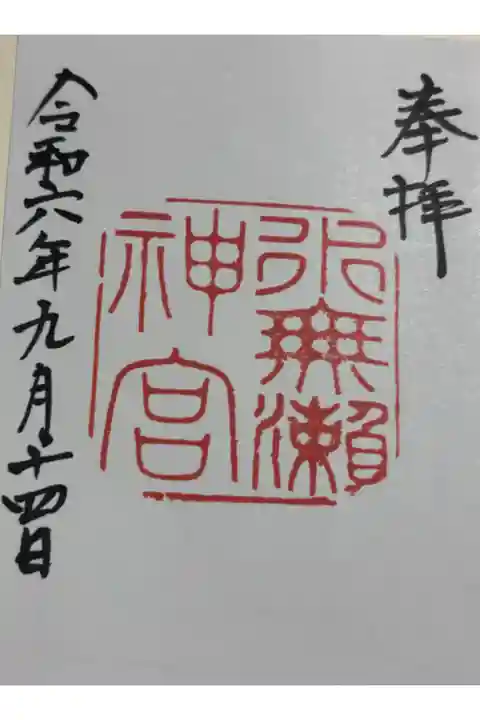 奉拝
水無瀬
神宮
令和六年九月十四日